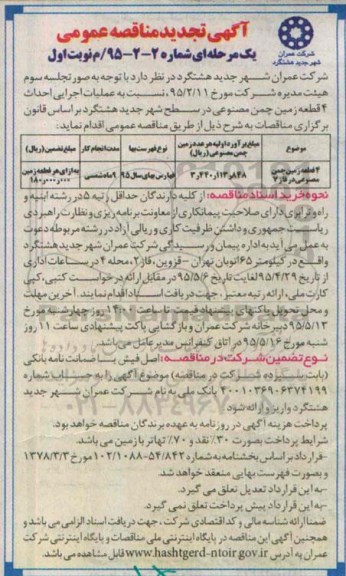 شرکت عمران
شهر جدید هشتگرد
آگهی تجدید مناقصه عمومی
یک مرحله‌ای شماره ۲-۲-۹۵/م نوبت اول
شرکت عمران شهر جدید هشتگرد در نظر دارد با توجه به صورتجلسه سوم
هیئت مدیره شرکت مورخ ۹۵/۲/۱۱، نسبت به عملیات اجرایی احداث
۴ قطعه زمین چمن مصنوعی در سطح شهر جدید هشتگرد بر اساس قانون
برگزاری مناقصات به شرح ذیل از طریق مناقصه عمومی اقدام نماید:
موضوع
مبلغ برآورد اولیه هر عدد زمین چمن مصنوعی (ریال)
نوع فهرست بها
مدت انجام کار
مبلغ تضمین (ریال)
۴ قطعه زمین چمن مصنوعی در فاز ۲
۳،۴۴۰،۱۱۳،۸۴۸
فهارس بهای سال ۹۵
۹ ماه شمسی
به ازای هر قطعه زمین ۱۸۰،۰۰۰،۰۰۰
نحوه خرید اسناد مناقصه: از کلیه دارندگان حداقل رتبه ۵ در رشته ابنیه و
راه و ترابری دارای صلاحیت پیمانکاری از معاونت برنامه ریزی و نظارت راهبردی
ریاست جمهوری و داشتن ظرفیت کاری و ریالی آزاد در رشته مربوطه دعوت
به عمل می آید به اداره پیمان و رسیدگی شرکت عمران شهر جدید هشتگرد
واقع در کیلومتر ۶۵ اتوبان تهران - قزوین، فاز ۲، محله ۴ در ساعات اداری
از تاریخ ۹۵/۴/۲۹ لغایت تاریخ ۹۵/۵/۶ در مقابل ارائه درخواست کتبی، کپی
کارت ملی، ارائه رتبه معتبر، جهت دریافت اسناد اقدام نمایند. آخرین مهلت
و محل تحویل پاکتهای پیشنهاد قیمت تا ساعت ۱۴:۰۰ روز چهارشنبه مورخ
۹۵/۵/۱۳ دبیرخانه شرکت عمران و بازگشایی پاکت پیشنهادی ساعت ۱۱ روز
شنبه مورخ ۹۵/۵/۱۶ در اتاق کنفرانس مدیرعامل می باشد.
نوع تضمین شرکت در مناقصه: اصل فیش یا ضمانت نامه بانکی
(بابت سپرده شرکت در مناقصه) موضوع آگهی را به حساب شماره
۳۰۰۱۰۳۶۹۰۶۳۷۴۱۹۹ بانک ملی به نام شرکت عمران شهر جدید
هشتگرد واریز و ارائه شود
پرداخت هزینه آگهی در روزنامه به عهده برندگان مناقصه خواهد بود.
شرایط پرداخت بصورت ۳۰٪ نقد و ۷۰٪ تهاتر با زمین می باشد.
-قرارداد بر اساس بخشنامه به شماره ۵۴/۸۴۲-۱۰۲/۱۰۸۸ مورخ ۱۳۷۸/۳/۳
و بصورت فهرست بهایی منعقد خواهد شد.
-به این قرارداد تعدیل تعلق می گیرد.
-به این قرارداد پیش پرداخت تعلق نمی گیرد.
ضمنا ارائه شناسه مالی و کد اقتصادی شرکت، جهت دریافت اسناد الزامی می باشد و
همچنین آگهی این مناقصه در پایگاه اینترنتی ملی مناقصات و پایگاه اینترنتی شرکت
عمران به آدرس www.hashtgerd-ntoir.gov.ir قابل مشاهده می باشد.